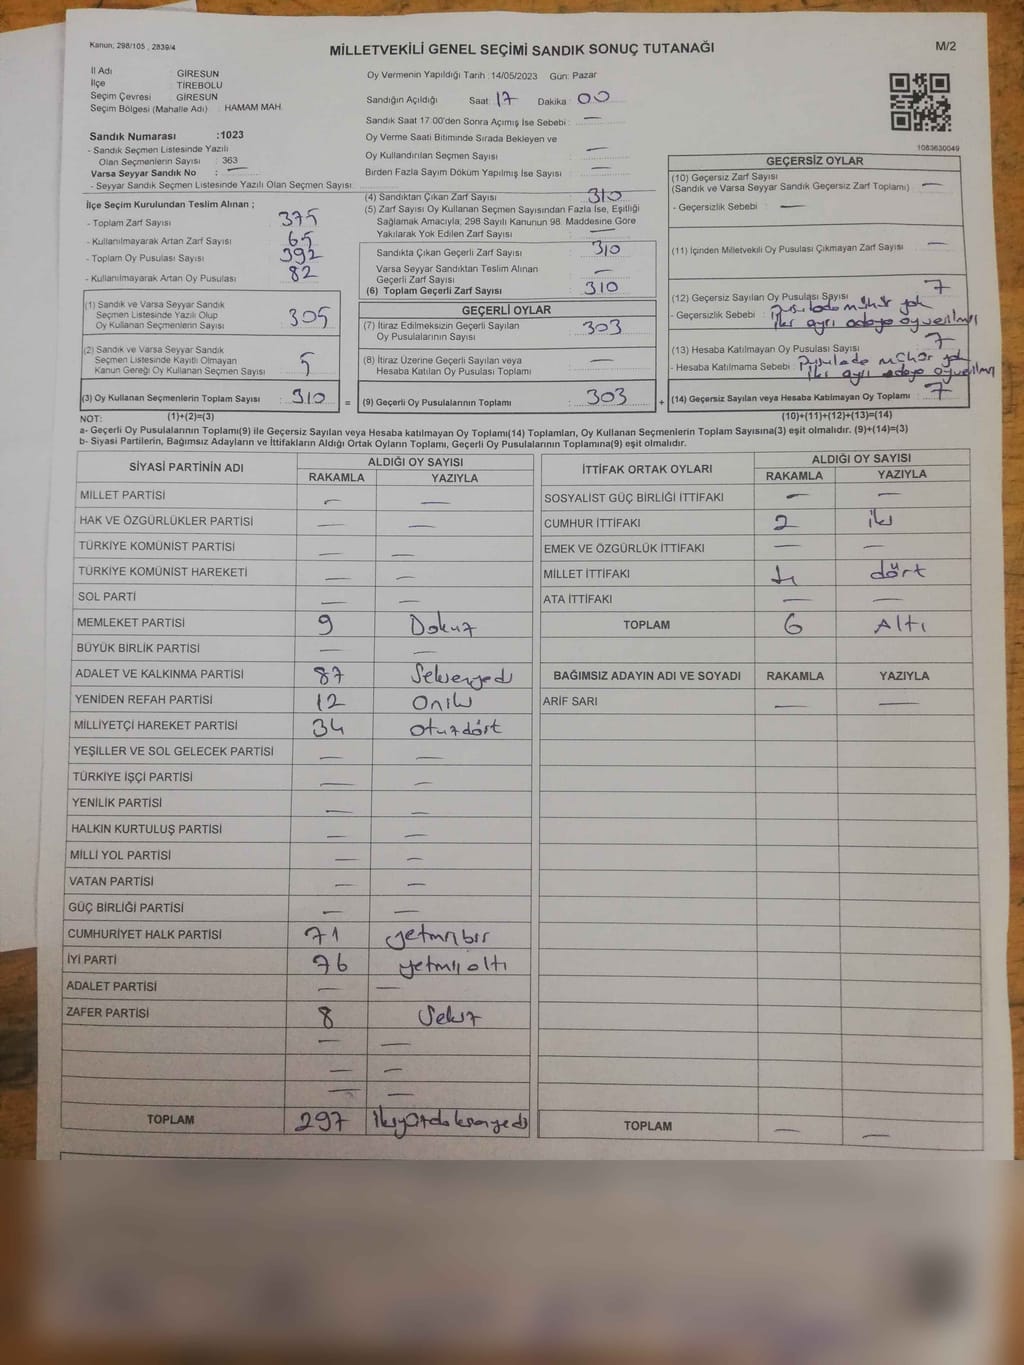 Kanun; 298/105 , 2839/4
MİLLETVEKİLİ GENEL SEÇİMİ SANDIK SONUÇ TUTANAĞI
M/2
İl Adı : GİRESUN
İlçe : TİREBOLU
Seçim Çevresi : GİRESUN
Seçim Bölgesi (Mahalle Adı) : HAMAM MAH.
Sandık Numarası :1023
- Sandık Seçmen Listesinde Yazılı
Olan Seçmenlerin Sayısı : 363
Varsa Seyyar Sandık No : —
- Seyyar Sandık Seçmen Listesinde Yazılı Olan Seçmen Sayısı :
Oy Vermenin Yapıldığı Tarih :14/05/2023 Gün: Pazar
Sandığın Açıldığı Saat :17 Dakika :00
Sandık Saat 17:00'den Sonra Açımış İse Sebebi : —
Oy Verme Saati Bitiminde Sırada Bekleyen ve
Oy Kullandırılan Seçmen Sayısı : —
Birden Fazla Sayım Döküm Yapılmış İse Sayısı : —
1083630049
İlçe Seçim Kurulundan Teslim Alınan ;
- Toplam Zarf Sayısı : 375
- Kullanılmayarak Artan Zarf Sayısı : 65
- Toplam Oy Pusulası Sayısı : 392
- Kullanılmayarak Artan Oy Pusulası : 82
(1) Sandık ve Varsa Seyyar Sandık
Seçmen Listesinde Yazılı Olup
Oy Kullanan Seçmenlerin Sayısı : 305
(2) Sandık ve Varsa Seyyar Sandık
Seçmen Listesinde Kayıtlı Olmayan
Kanun Gereği Oy Kullanan Seçmen Sayısı : 5
(3) Oy Kullanan Seçmenlerin Toplam Sayısı : 310 =
(4) Sandıktan Çıkan Zarf Sayısı : 310
(5) Zarf Sayısı Oy Kullanan Seçmen Sayısından Fazla İse, Eşitliği
Sağlamak Amacıyla; 298 Sayılı Kanunun 98. Maddesine Göre
Yakılarak Yok Edilen Zarf Sayısı : —
Sandıkta Çıkan Geçerli Zarf Sayısı : 310
Varsa Seyyar Sandıktan Teslim Alınan
Geçerli Zarf Sayısı : —
(6) Toplam Geçerli Zarf Sayısı : 310
GEÇERLİ OYLAR
(7) İtiraz Edilmeksizin Geçerli Sayılan
Oy Pusulalarının Sayısı : 303
(8) İtiraz Üzerine Geçerli Sayılan veya
Hesaba Katılan Oy Pusulası Toplamı : —
(9) Geçerli Oy Pusulalarının Toplamı : 303 +
GEÇERSİZ OYLAR
(10) Geçersiz Zarf Sayısı
(Sandık ve Varsa Seyyar Sandık Geçersiz Zarf Toplamı) : —
- Geçersizlik Sebebi : —
(11) İçinden Milletvekili Oy Pusulası Çıkmayan Zarf Sayısı : —
(12) Geçersiz Sayılan Oy Pusulası Sayısı : 7
- Geçersizlik Sebebi : Pusulada mühür yok
iki ayrı adaya oy verilmiş
(13) Hesaba Katılmayan Oy Pusulası Sayısı : 7
- Hesaba Katılmama Sebebi : Pusulada mühür yok
iki ayrı adaya oy verilmiş
(14) Geçersiz Sayılan veya Hesaba Katılmayan Oy Toplamı : 7
NOT: (1)+(2)=(3)
(10)+(11)+(12)+(13)=(14)
a- Geçerli Oy Pusulasının Toplamı(9) ile Geçersiz Sayılan veya Hesaba katılmayan Oy Toplamı(14) Toplamları, Oy Kullanan Seçmenlerin Toplam Sayısına(3) eşit olmalıdır. (9)+(14)=(3)
b- Siyasi Partilerin, Bağımsız Adayların ve İttifakların Aldığı Ortak Oyların Toplamı, Geçerli Oy Pusulalarının Toplamına(9) eşit olmalıdır.
SİYASİ PARTİNİN ADI ALDIĞI OY SAYISI
RAKAMLA YAZIYLA
MİLLET PARTİSİ — —
HAK VE ÖZGÜRLÜKLER PARTİSİ — —
TÜRKİYE KOMÜNİST PARTİSİ — —
TÜRKİYE KOMÜNİST HAREKETİ — —
SOL PARTİ — —
MEMLEKET PARTİSİ 9 Dokuz
BÜYÜK BİRLİK PARTİSİ — —
ADALET VE KALKINMA PARTİSİ 87 Seksenyedi
YENİDEN REFAH PARTİSİ 12 Oniki
MİLLİYETÇİ HAREKET PARTİSİ 34 otuzdört
YEŞİLLER VE SOL GELECEK PARTİSİ — —
TÜRKİYE İŞÇİ PARTİSİ — —
YENİLİK PARTİSİ — —
HALKIN KURTULUŞ PARTİSİ — —
MİLLİ YOL PARTİSİ — —
VATAN PARTİSİ — —
GÜÇ BİRLİĞİ PARTİSİ — —
CUMHURİYET HALK PARTİSİ 71 yetmişbir
İYİ PARTİ 76 yetmiş altı
ADALET PARTİSİ — —
ZAFER PARTİSİ 8 Sekiz
— —
— —
— —
TOPLAM 297 ikiyüzdoksanyedi
İTTİFAK ORTAK OYLARI ALDIĞI OY SAYISI
RAKAMLA YAZIYLA
SOSYALİST GÜÇ BİRLİĞİ İTTİFAKI — —
CUMHUR İTTİFAKI 2 iki
EMEK VE ÖZGÜRLÜK İTTİFAKI — —
MİLLET İTTİFAKI 4 dört
ATA İTTİFAKI — —
TOPLAM 6 Altı
BAĞIMSIZ ADAYIN ADI VE SOYADI RAKAMLA YAZIYLA
ARİF SARI — —
TOPLAM — —